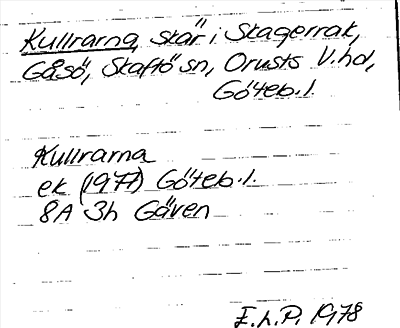 Kullrarna, skär i Skagerrak,
Gåsö, Skaftö sn, Orusts V. hd,
Göteb. l.
Kullrarna
ek (1977) Göteb. l.
8A 3h Gåven
E.h.P. 1978